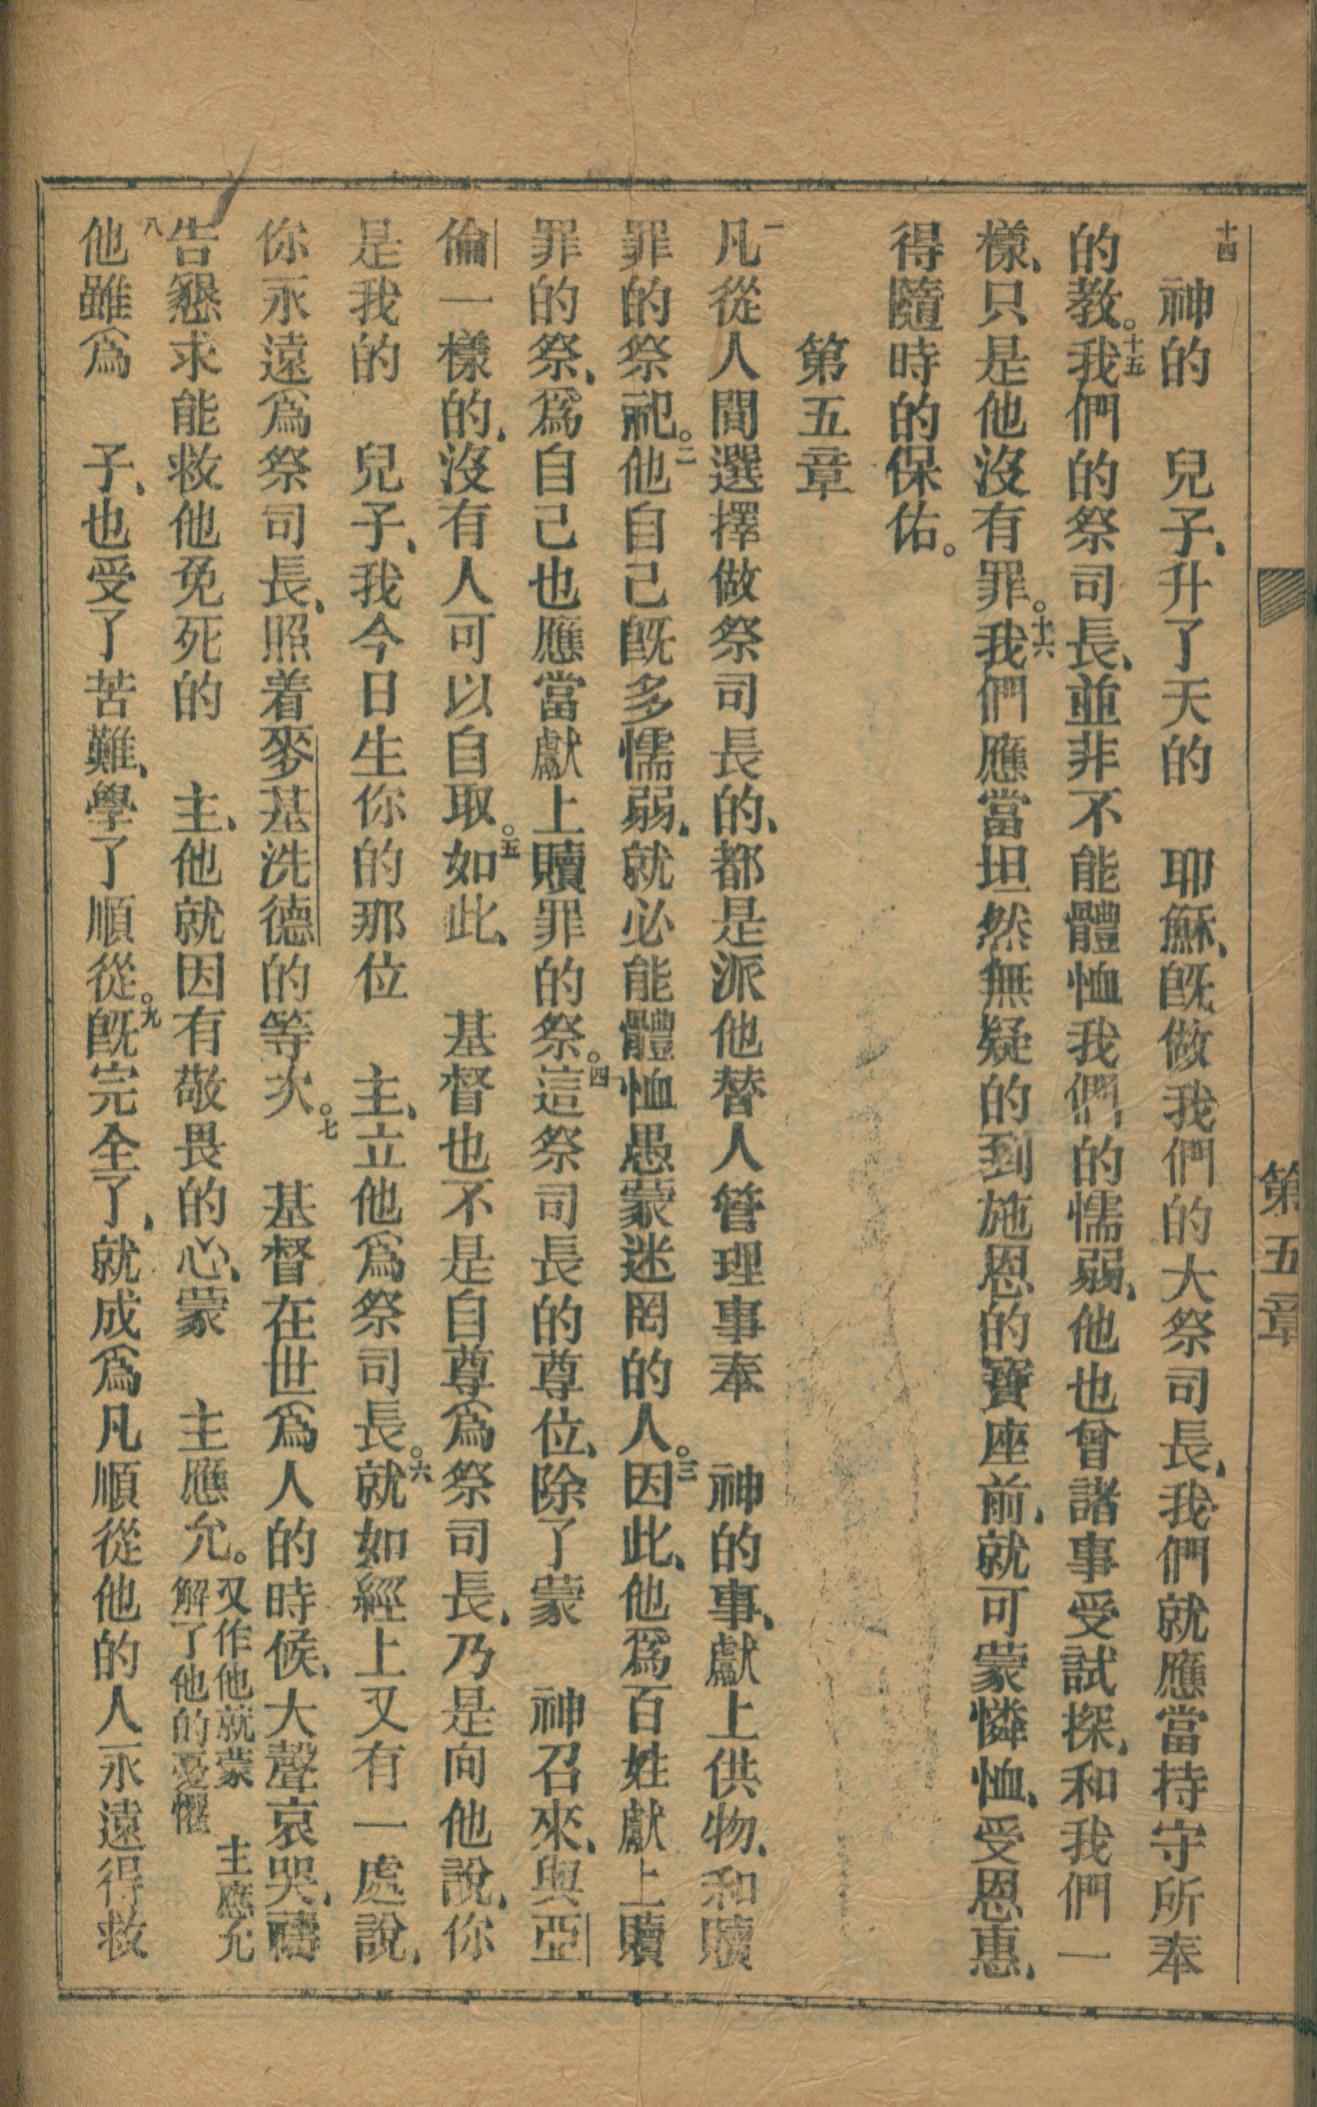 第五章
十四　神的　兒子、升了天的　耶穌、旣做我們的大祭司長、我們就應當持守所奉
的教。十五我們的祭司長、並非不能體恤我們的懦弱、他也曾諸事受試探、和我們一
樣、只是他沒有罪。十六我們應當坦然無疑的到施恩的寶座前、就可蒙憐恤、受恩惠、
得隨時的保佑。
第五章
一凡從人間選擇做祭司長的、都是派他替人管理事奉　神的事、獻上供物、和贖
罪的祭祀。二他自己旣多懦弱、就必能體恤愚蒙迷罔的人。三因此、他爲百姓獻上贖
罪的祭、爲自己也應當獻上贖罪的祭。四這祭司長的尊位、除了蒙　神召來、與亞
倫一樣的、沒有人可以自取。五如此、　基督也不是自尊爲祭司長、乃是向他說、你
是我的　兒子、我今日生你的那位　主、立他爲祭司長。六就如經上又有一處說、
你永遠爲祭司長、照着麥基洗德的等次。七　基督在世爲人的時候、大聲哀哭、禱
告懇求能救他免死的　主、他就因有敬畏的心、蒙　主應允。又作他就蒙　主應允
解了他的憂懼
八他雖爲　子、也受了苦難、學了順從。九旣完全了、就成爲凡順從他的人永遠得救